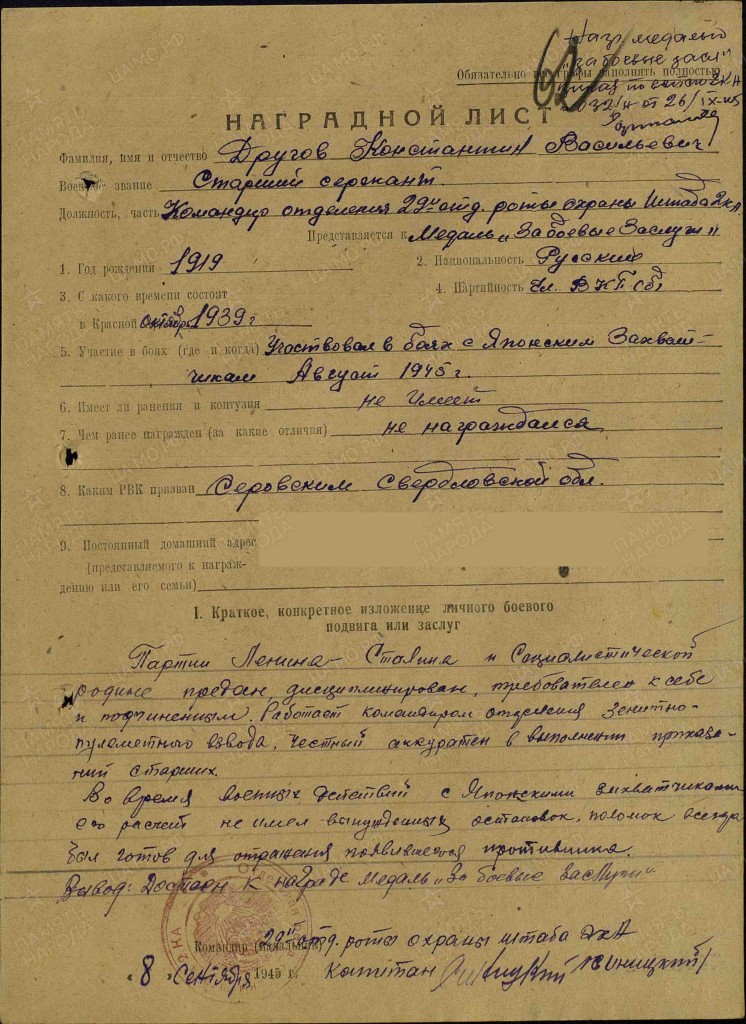 Нагр. медалью
"За боевые засл"
Обязательно все графы заполнять полностью
от 26/IX-45
62
НАГРАДНОЙ ЛИСТ
Фамилия, имя и отчество Другов Константин Васильевич
Военное звание Старший сержант.
Должность, часть Командир отделения 29й отд. роты охраны Штаба 2КА.
Представляется к Медаль „За боевые Заслуги"
1. Год рождения 1919
2. Национальность Русский
3. С какого времени состоят
4. Партийность Чл. ВКП(б)
в Красной октябрь 1939 г
5. Участие в боях (где и когда) Участвовал в боях с Японским Захват-
чикам Август 1945 г.
6. Имеет ли ранения и контузия не имеет
7. Чем ранее награжден (за какие отличия) не награждался
8. Каким РВК призван Серовским Свердловской обл.
9. Постоянный домашний адрес
(представляемого к награж-
дению или его семьи)
I. Краткое, конкретное изложение личного боевого
подвига или заслуг
Партии Ленина-Сталина и Социалистической
родине предан, дисциплинирован, требователен к себе
и подчиненным. Работает командиром отделения зенитно-
пулеметного взвода, честный аккуратен в выполнении приказа-
ний старших.
Во время военных действий с Японскими захватчиками
его расчет не имел вынужденных остановок, поломок всегда
был готов для отражения появившегося противника.
Вывод: Достоен к награде медаль „За боевые заслуги"
Командир (начальник) 29й отд. роты охраны штаба 2кА
"8" Сентября 1945 г. капитан /Синицкий/